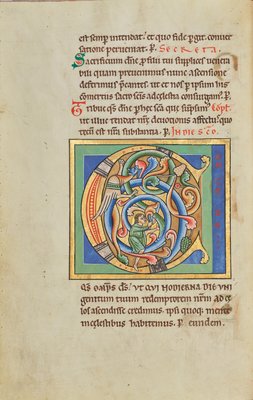 est semp intendat. et quo fide pergit. conver
satione perveniat. P. SECRETA.
Sacrificium dne p filii tui supplices venera
bili quam prevenimus nunc ascensione
deferimus presta ut. et nos p ipsum his
comertiis sacrosctis ad celestia consurgam. P.
Tribue qs dne p hec sca que supsim copl.
ut illuc tendat nre devotionis affect quo
tecum est nra substantia. P. IN DIE SCO
C
ds ut qui hodierna die uni
genitum tuum redemptorem nrm ad ce
los ascendisse credimus. ipsi quoq mente
in celestibus habitemus. P eundem.